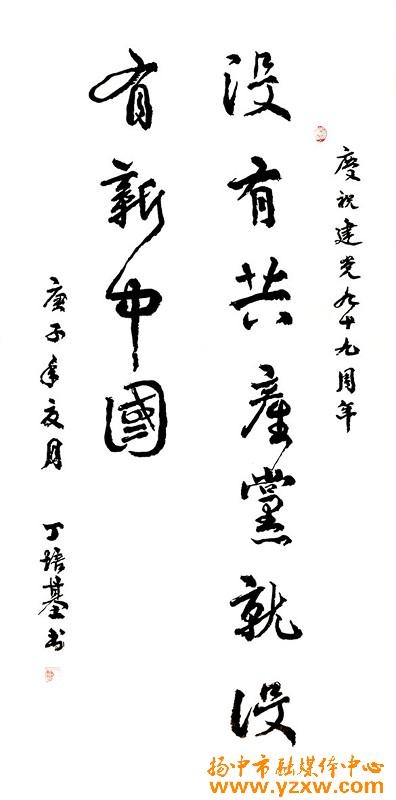 慶祝建党九十九周年
没有共產黨就没
有新中國
庚子年夏月 丁培基书
扬中市融媒体中心
www.yzxw.com